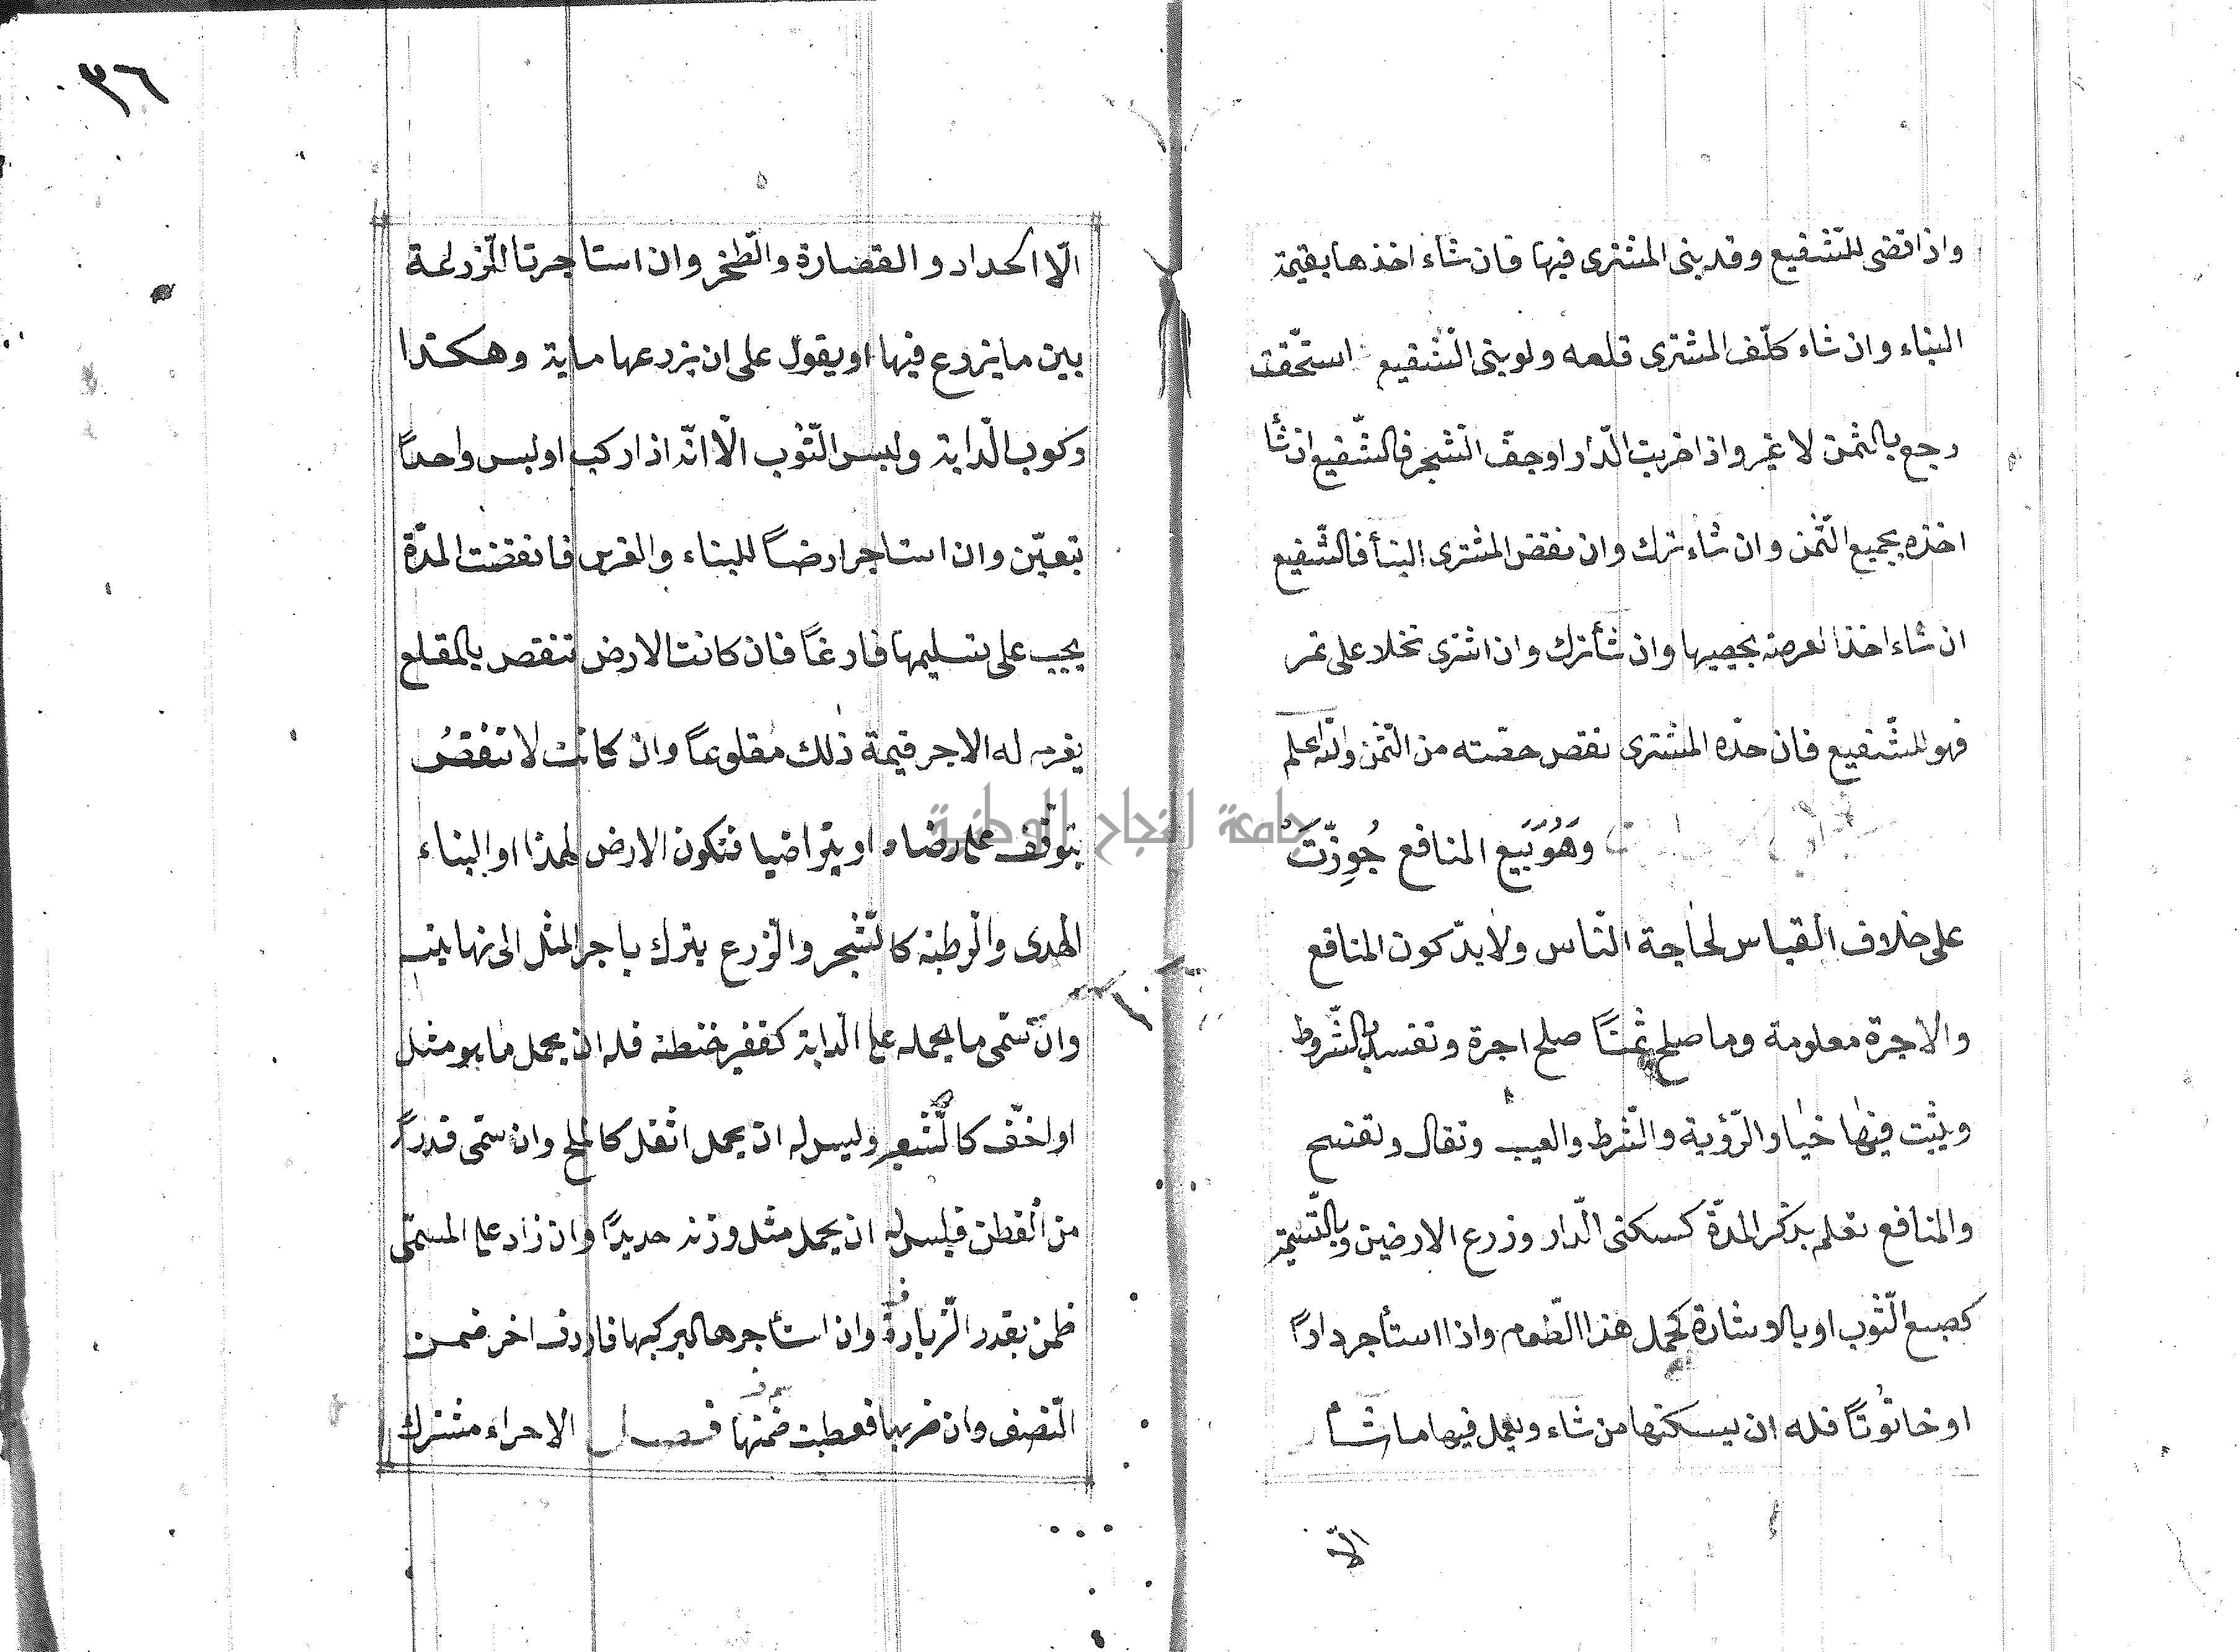 واذا قضى للشّفيع وقد بنى المشترى فيها فان شاء اخذها بقيمة
البناء وان شاء كلّف المشترى قلعه ولو بنى الشّفيع استحّقت
رجع بالثمن لا غير واذا خربت الدّار او جفّ الشّجر فالشّفيع ان شأ
اخذه بجميع الثّمن وان شاء ترك وان نقض المشترى البنأ فالشّفيع
ان شاء اخذ العرصة بحصيها وان شأ ترك وان اشترى نخلا على ثمر
فهو للشّفيع فان جدّه المشترى نقص حصّته من الثّمن والله اعلم
وَهَوُ بَيع المنافع جُوِزّتَ
على خلاف القياس لحاجة النّاس ولا بدّ كون المنافع
والاجرة معلومة وما صلح ثمنًا صلح اجرة وتفسد بالشّروط
ويثبت فيها خيار الرّؤية والشّرط والعيب وتقال وتفسح
والمنافع تعلم بذكر المدّة كسكنى الدّار وزرع الارضين وبالتّسمية
كصبع الثّوب او بالاشارة كحمل هذا الطّعام واذا استأجر دارًا
او حانُوتًا فله ان يسكنها من شاء ويعمل فيها ما شأ
الّا
٣٦
الّا الحداد والقصارة والطّخر وان استاجرتا للّزراعة
بين ما يزرع فيها او يقول على ان يزرعها ماية وهكذا
ركوب الدّابة ولبس الثّوب الّا انّه اذا ركب او لبس واحدًا
تعيّن وان استاجر ارضًا للبناء والغرس فانقضت المدّة
يجب على تسليمها فارغًا فان كانت الارض تنقص بالمقلع
يغرم له الاجر قيمة ذلك مقلوعًا وان كانت لا تنقصُ
يتوقّف على رضاه او يتراضيا فتكون الارض لهذا او البناء
لهدى والرطبة كالشّجر والزّرع يترك باجر المثل الى نهايته
وان سّمى ما يحمله على الدابة كقفيز حنطة فله ان يحمل ما هو مثل
او اخفّ كالشّعير وليس له ان يحمل اثقل كالملح وان سمّى قدرًا
من القطن فليس له ان يحمل مثل وزنه حديدًا وان زاد على المسمّى
ظمن بقدر الزّيارة وان استأجرها ليركبها فاردف اخر ضمن
النّصف وان ضربها فعطبت ضمنها فصل الاجراء مشترك
جامعة النجاح الوطنية